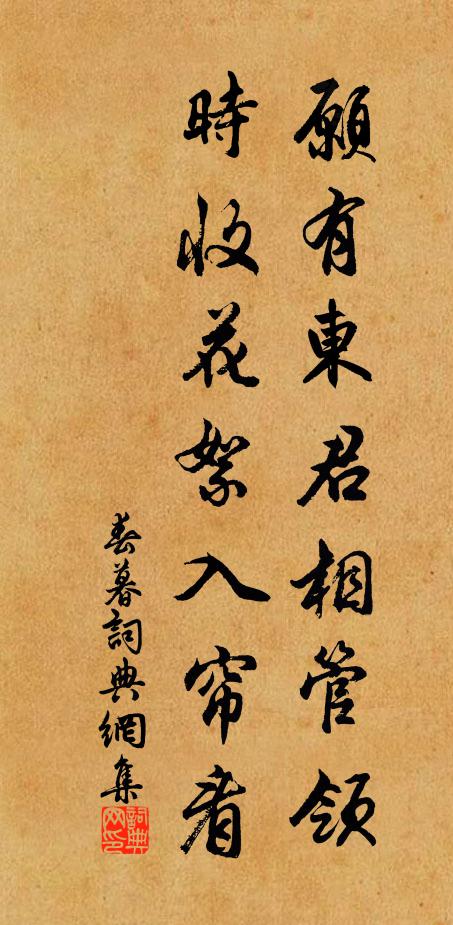 願有東君相管領
時收花絮入帘看
春暮詞典網集
詞典
网印